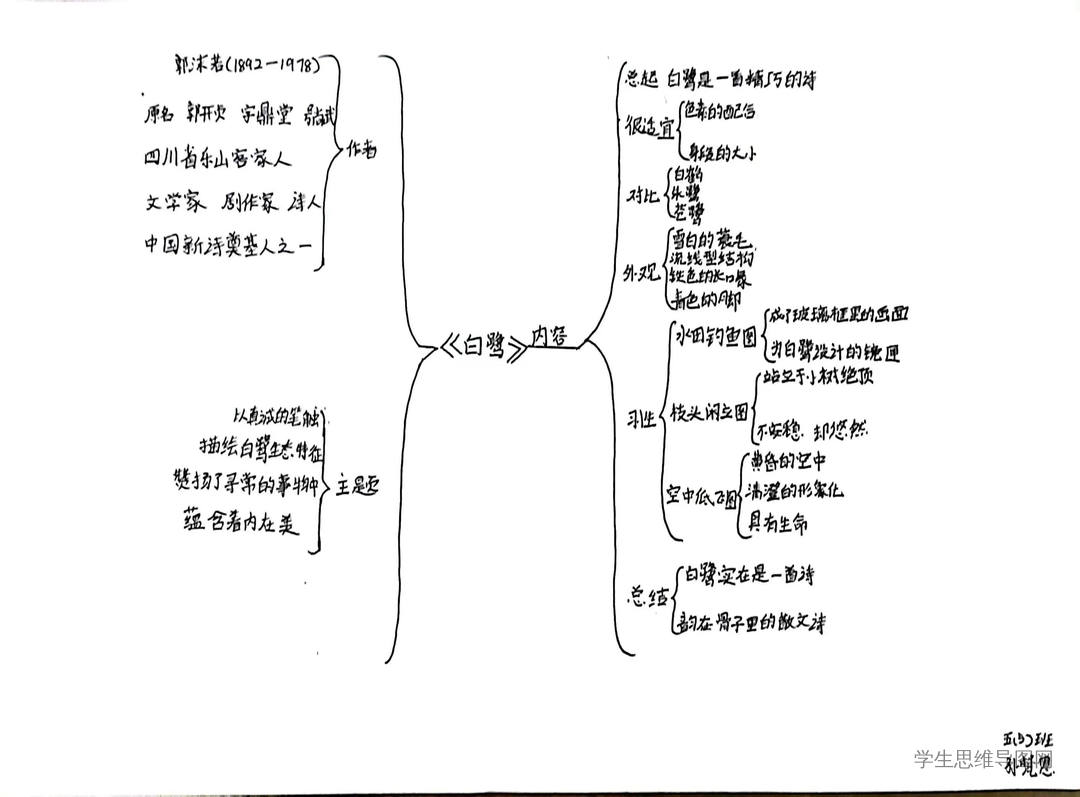 郭沫若(1892—1978)
原名 郭开贞 字鼎堂 号尚武
四川省乐山客家人
文学家 剧作家 诗人
中国新诗奠基人之一
作者
以真诚的笔触
描绘白鹭生态特征
赞扬了寻常的事物中
蕴含着内在美
主题
《白鹭》
内容
总起 白鹭是一首精巧的诗
很适宜
色素的配合
身段的大小
对比
白鹤
朱鹭
苍鹭
外观
雪白的蓑毛
流线型结构
铁色的长喙
青色的脚
习性
水田钓鱼图
成了玻璃框里的画面
为白鹭设计的镜匣
枝头闲立图
站立于小树绝顶
不安稳 却悠然
空中低飞图
黄昏的空中
清澄的形象化
具有生命
总结
白鹭实在是一首诗
韵在骨子里的散文诗
学生思维导图网